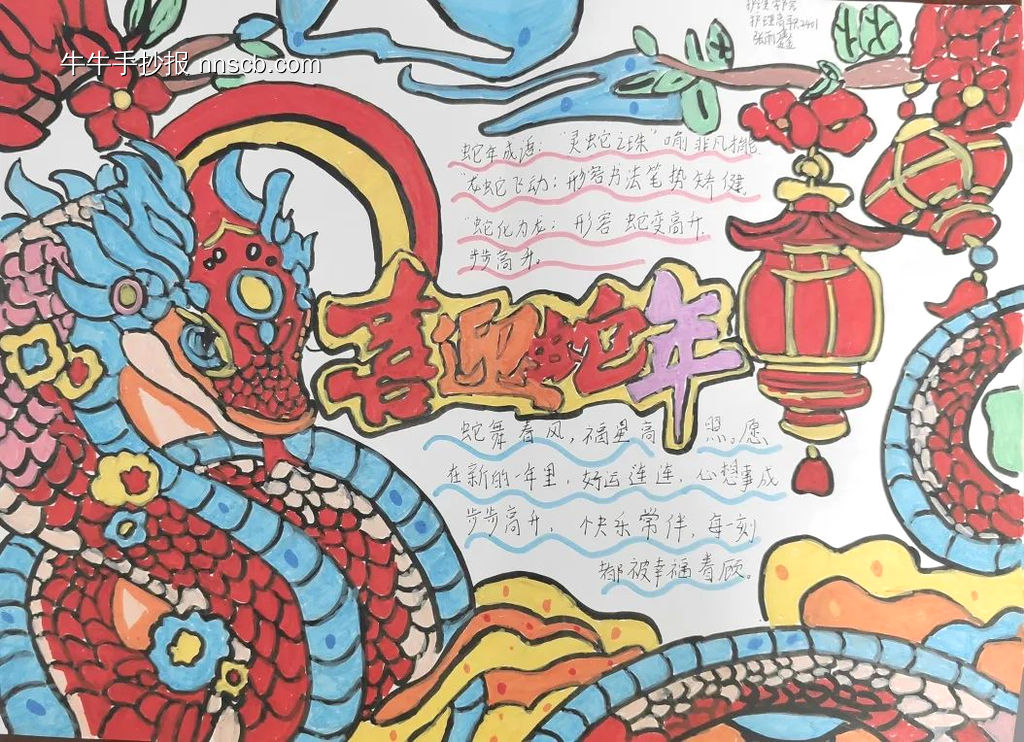 牛牛手抄报 nnscb.com
护理学院
护理高职2401
张雨鑫
蛇年成语：“灵蛇之珠”喻非凡才能.
“龙蛇飞动：形容书法笔势矫健.
“蛇化为龙：形容 蛇变高升.
步步高升。
喜迎蛇年
蛇舞春风，福星高照。愿
在新的一年里，好运连连，心想事成
步步高升，快乐常伴，每一刻
都被幸福眷顾。